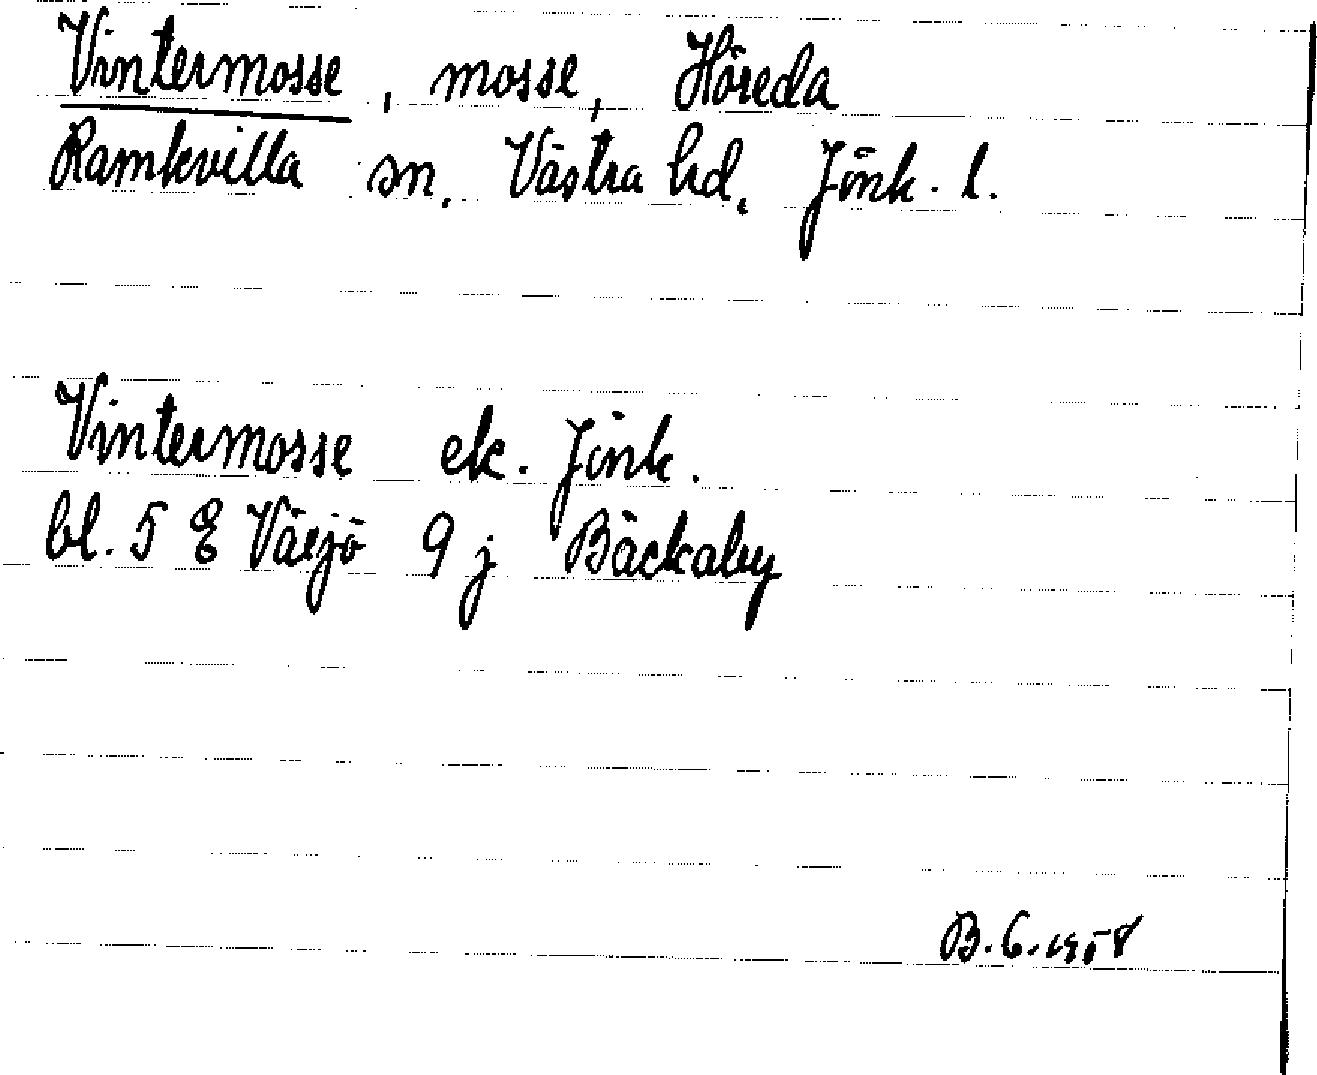 Vintermosse, mosse, Höreda
Ramkvilla sn. Västra hd. Jönk. l.
Vintermosse ek. Jönk.
bl. 5 E Växjö 9 j Bäckaby
B. 6. 1958